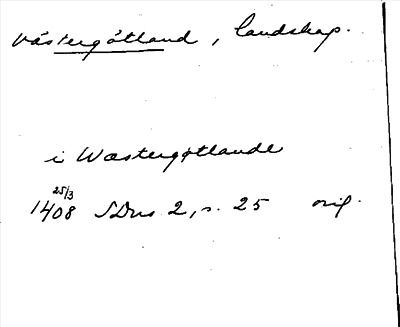 Västergötland, landskap.
i Wæstergøtlande
25/3
1408 SDns 2, s. 25 orig.